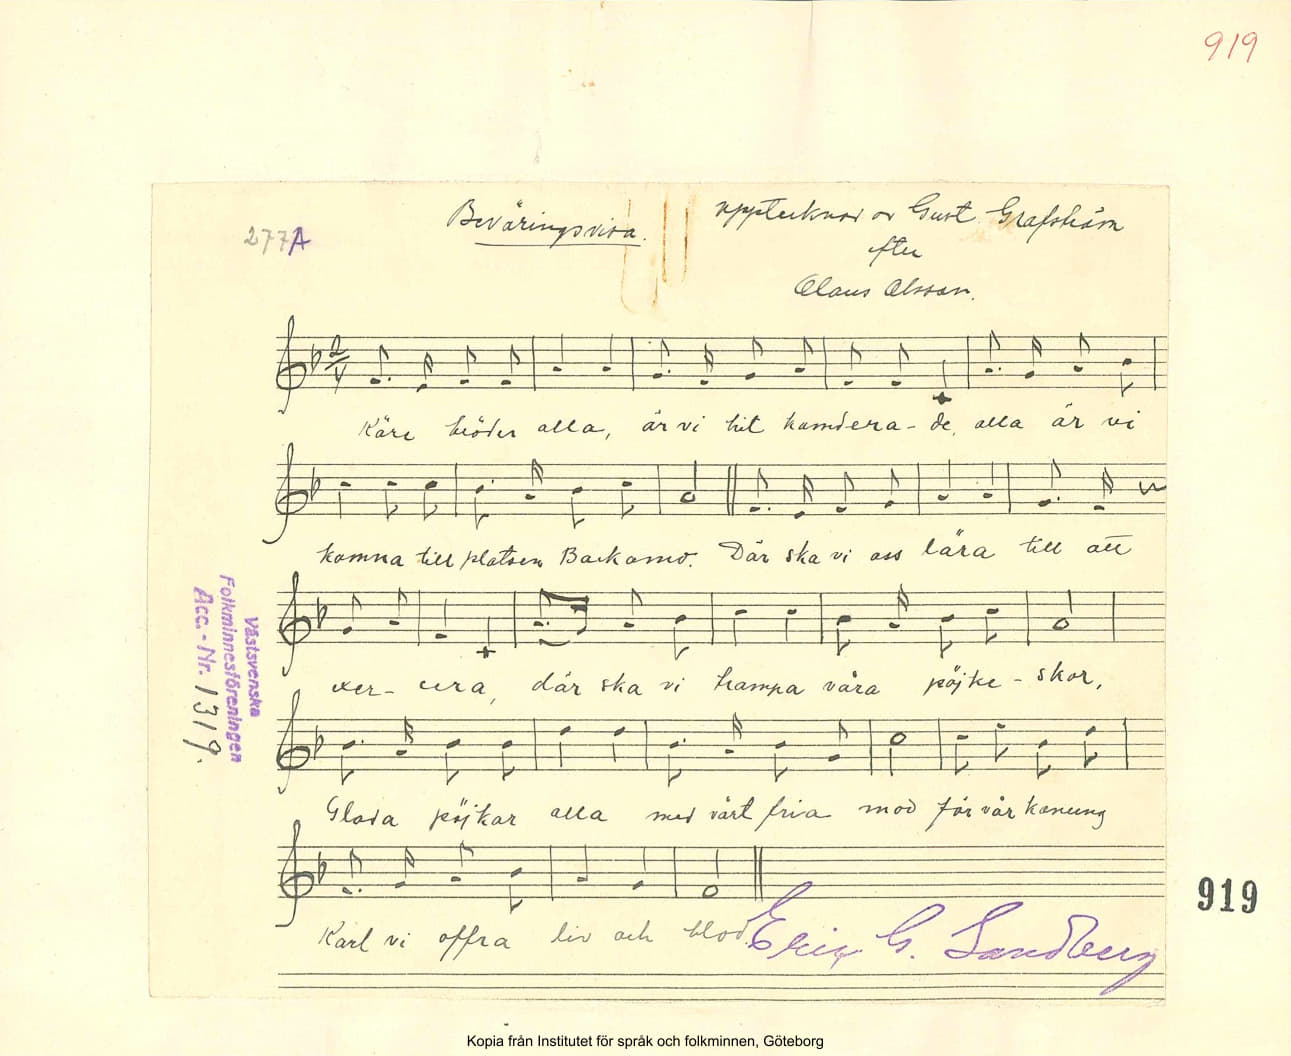 919
277A
Beväringsvisa.
upptecknad av Gust. Grafström
efter
Olaus Olsson.
Käre bröder alla, är vi hit komdera- de, alla är vi
komna till platsen Backamo. Där ska vi oss lära till att
exer- cera, där ska vi trampa våra pöjke - skor,
Glada pöjkar alla med vårt fria mod för vår konung
Karl vi offra liv och blod.
Eric G. Sandberg
Västsvenska
Folkminnesföreningen
Acc. - Nr. 1319.
919
Kopia från Institutet för språk och folkminnen, Göteborg